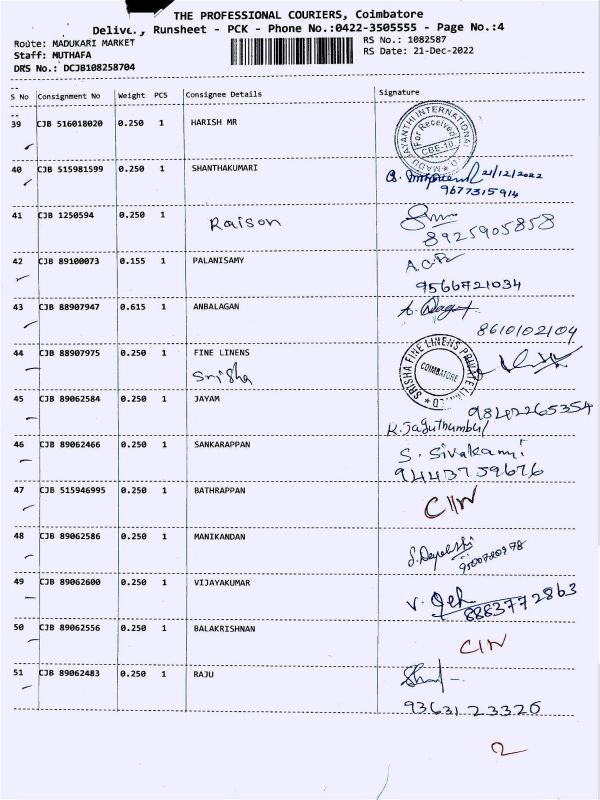 THE PROFESSIONAL COURIERS, Coimbatore
Runsheet - PCK - Phone No.:0422-3505555 - Page No.:4
Route: MADUKARI MARKET
RS No.: 1082587
Staff: MUTHAFA
RS Date: 21-Dec-2022
DRS No.: DCJB108258704
S No Consignment No Weight PCS Consignee Details Signature
39 CJB 516018020 0.250 1 HARISH MR
MADHUJAYANTHI INTERNATIONAL
For Received
CBE-10
40 CJB 515981599 0.250 1 SHANTHAKUMARI
21/12/2022
9677315914
41 CJB 1250594 0.250 1 Raison
8925905858
42 CJB 89100073 0.155 1 PALANISAMY
9566721034
43 CJB 88907947 0.615 1 ANBALAGAN
8610102109
44 CJB 88907975 0.250 1 FINE LINENS
Srisha
SRISHA FINE LINENS PRIVATE LIMITED
COIMBATORE
45 CJB 89062584 0.250 1 JAYAM
9842265354
46 CJB 89062466 0.250 1 SANKARAPPAN
S. Sivakami
9443759676
47 CJB 515946995 0.250 1 BATHRAPPAN
48 CJB 89062586 0.250 1 MANIKANDAN
9500780978
49 CJB 89062600 0.250 1 VIJAYAKUMAR
8883772863
50 CJB 89062556 0.250 1 BALAKRISHNAN
51 CJB 89062483 0.250 1 RAJU
9363123326
2